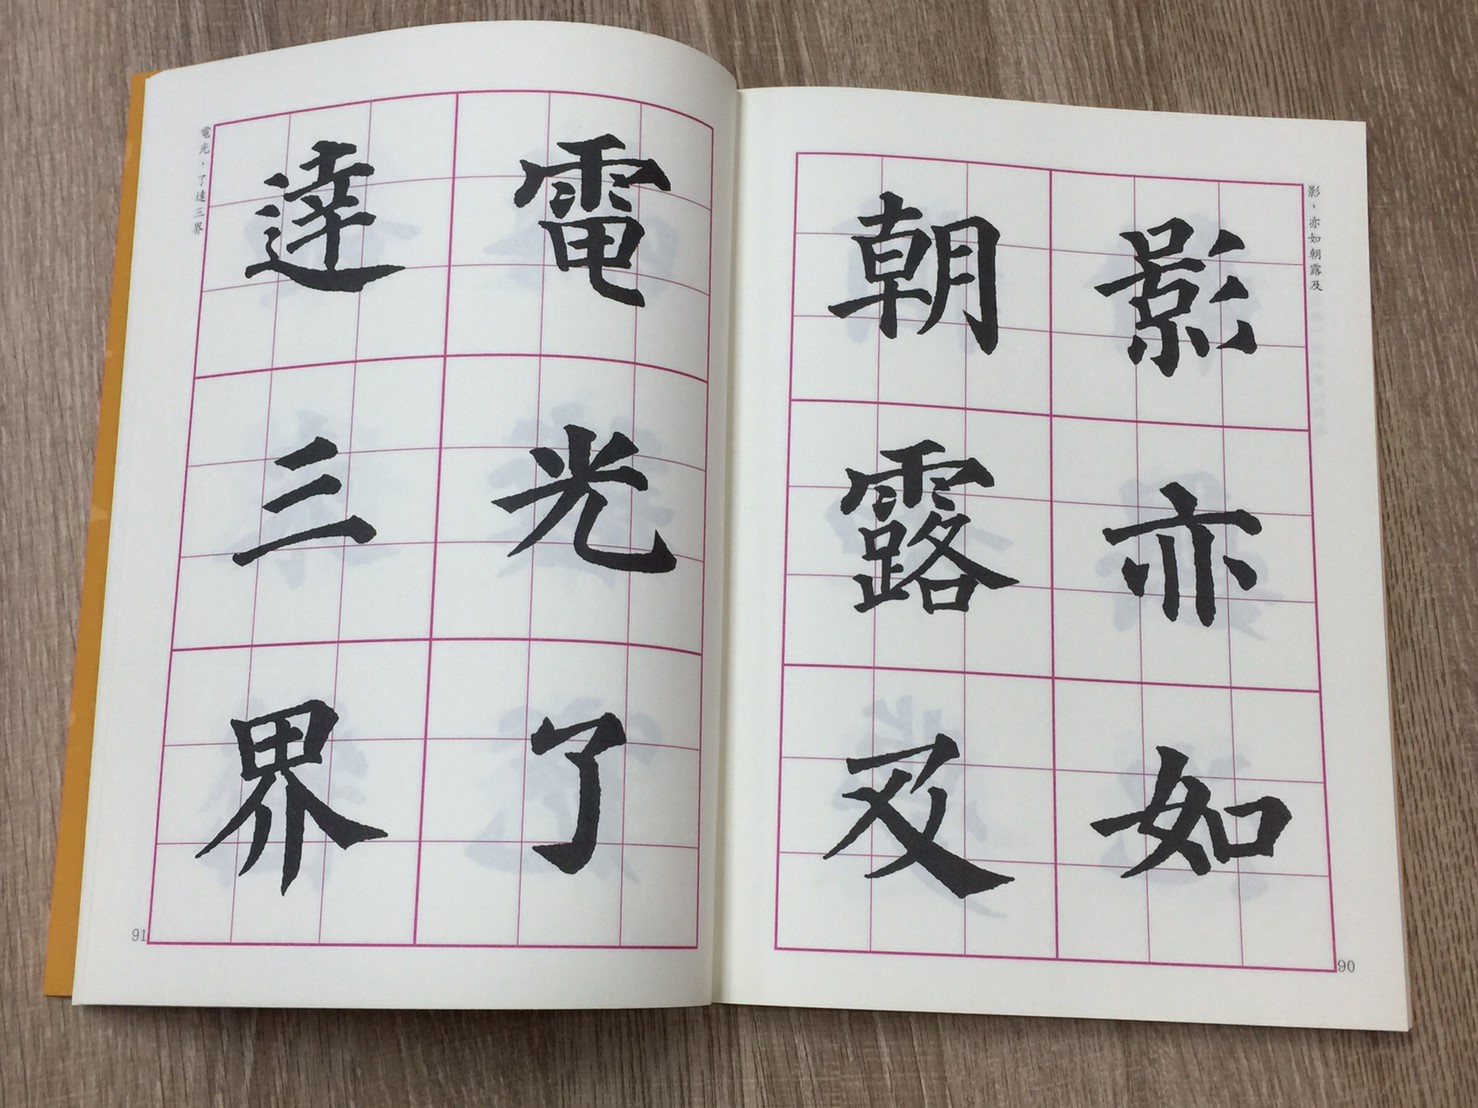 影・亦如朝露及
影亦如
朝露及
90
電光・了達三界
電光了
達三界
91